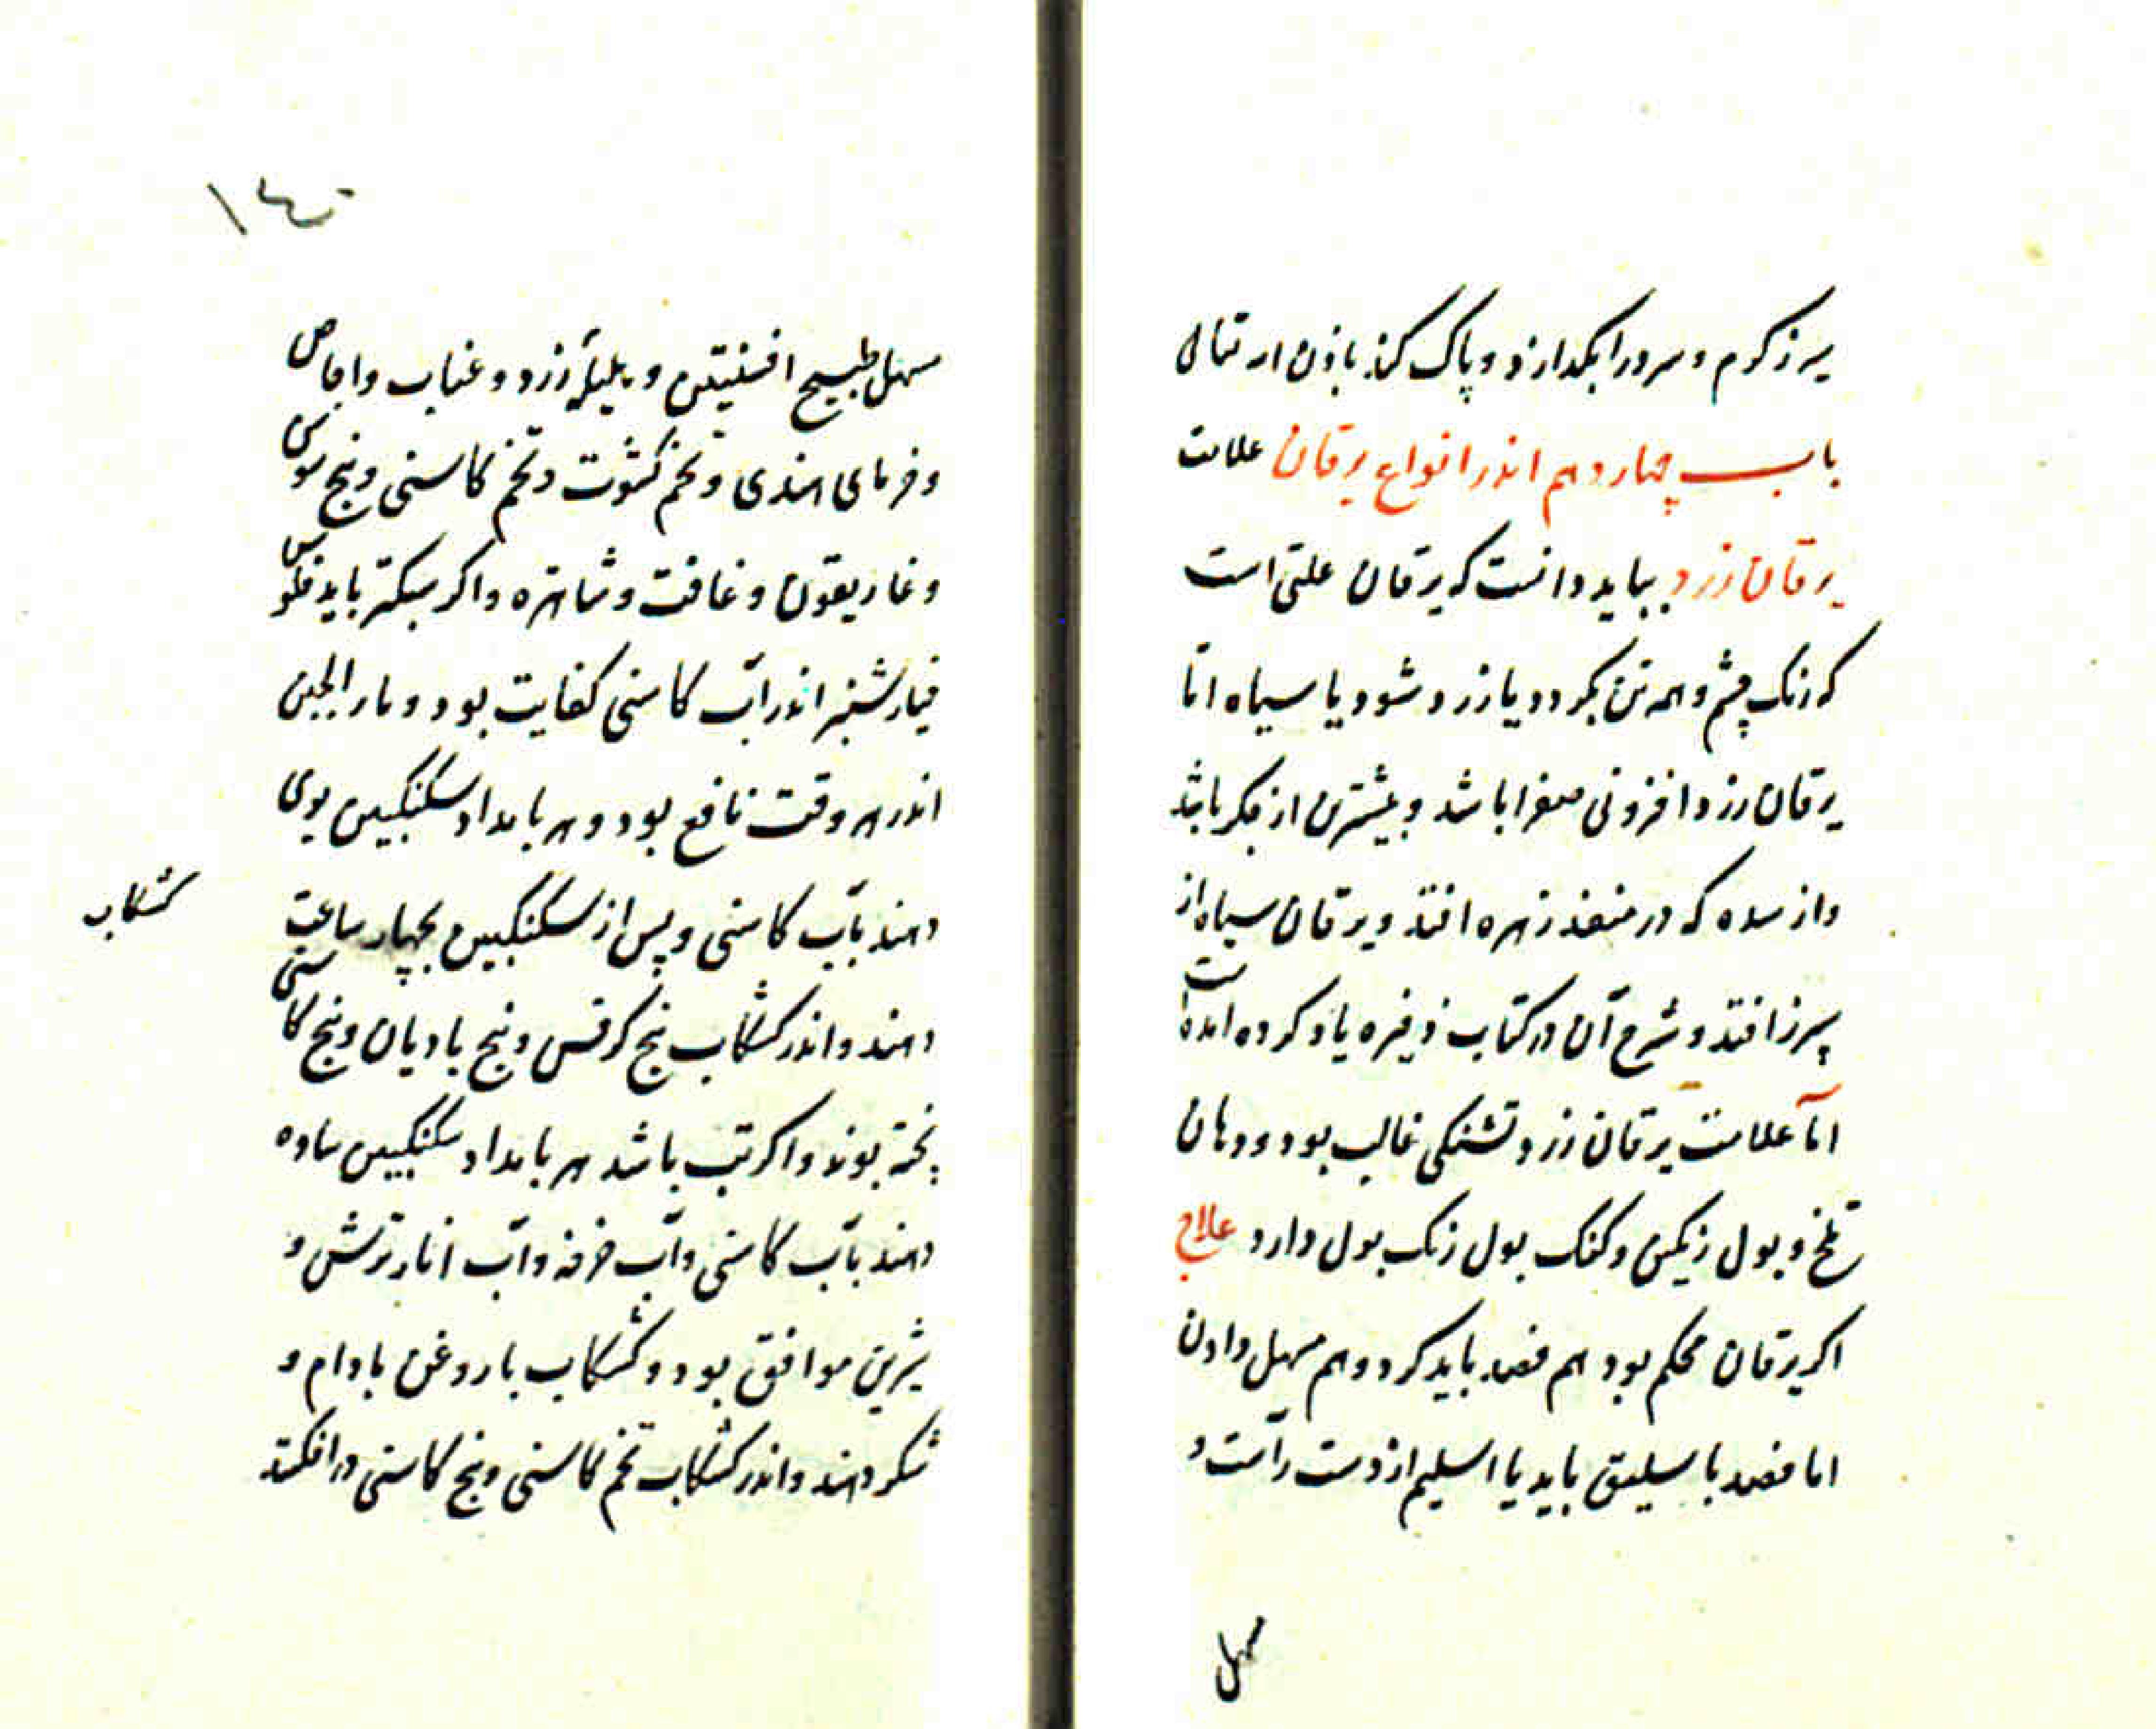 سپرز کرم و سرد را بکدازد و پاک کند باذن الله تعالی
باب چهاردهم اندر انواع یرقان علامت
یرقان زرد بباید دانست که یرقان علتی است
که رنک چشم و همه تن بکردد یا زرد شود یا سیاه اما
یرقان زرد از فزونی صفرا باشد و بیشترین از جکر باشد
و از سده که در منفذ زهره افتد و یرقان سیاه از
سپرز افتد و شرح آن در کتاب ذخیره یاد کرده امده است
اما علامت یرقان زرد تشنکی غالب بود و دهان
تلخ و بول رنکین و کفک بول رنک بول دارد علاج
اکر یرقان محکم بود هم فصد باید کرد و هم مسهل دادن
اما فصد باسلیق باید یا اسلیم از دست راست و
مسهل
۱۴۰
مسهل طبیخ افسنتین و هلیله زرد و عناب و اجاص
و خرمای هندی و تخم کشوت و تخم کاسنی و بیخ سوس
و غاریقون و غافت و شاهتره و اکر سبکتر باید فلوس
خیارشنبر اندر آب کاسنی کفایت بود و ماء الجبن
اندر هر وقت نافع بود و هر بامداد سکنکبین بزوری
دهند بآب کاسنی و پس از سکنکبین بچهار ساعت
کشکاب
دهند و اندر کشکاب بیخ کرفس و بیخ بادیان و بیخ کاسنی
پخته بوند و اکر تب باشد هر بامداد سکنکبین ساده
دهند بآب کاسنی و آب خرفه و آب انار ترش و
شیرین موافق بود و کشکاب با روغن بادام و
شکر دهند و اندر کشکاب تخم کاسنی و بیخ کاسنی در افکنند